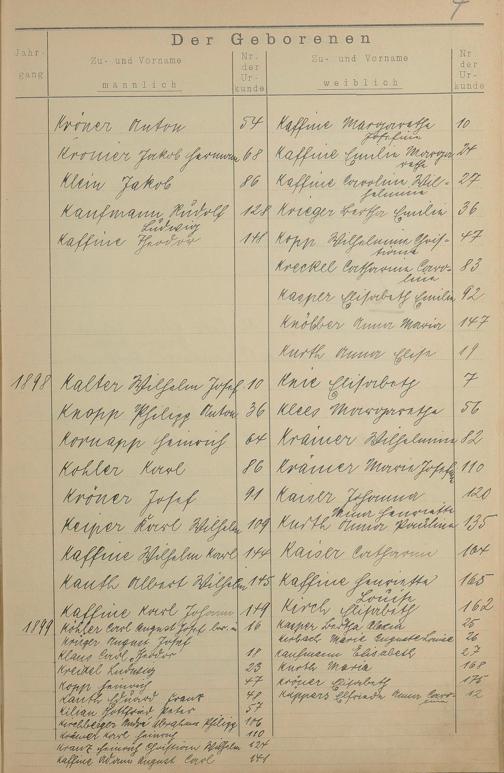 4
Der Geborenen
Jahr-
gang
Zu- und Vorname
männlich
Nr.
der
Ur-
kunde
Zu- und Vorname
weiblich
Nr.
der
Ur-
kunde
Kröner Anton 54 Kaffine Margarethe Josefine 10
Kromer Jakob Hermann 68 Kaffine Emilie Margarethe 24
Klein Jakob 86 Kaffine Caroline Wilhelmine 27
Kaufmann Rudolf Ludwig 128 Krieger Bertha Emilie 36
Kaffine Theodor 141 Kopp Wilhelmine Christiane 47
Kreckel Catharina Caroline 83
Kasper Elisabeth Emilie 92
Knöbber Anna Maria 147
Kurth Anna Elise 19
1898 Kalter Wilhelm Josef 10 Knie Elisabeth 7
Knopp Philipp Anton 36 Klees Margarethe 56
Kornapp Heinrich 64 Krämer Wilhelmine 82
Kohler Karl 86 Krämer Maria Josefa 110
Kröner Josef 91 Kaiser Johanna 120
Keiper Karl Wilhelm 109 Kurth Anna Pauline Henriette 135
Kaffine Wilhelm Karl 144 Kaiser Catharina 164
Kauth Albert Wilhelm 145 Kaffine Henriette Louise 165
Kaffine Karl Johann 149 Kirch Elisabeth 162
1899 Köhler Carl August Josef 16 Kasper Bertha 25
Krieger August Josef Maria Auguste Louise 26
Klaus Carl Theodor 18 Kaufmann Elisabeth 27
Kreckel Ludwig 23 Kurth Maria 168
Kopp Heinrich 47 Kröner Elisabeth 175
Kauth Eduard Franz 48 Küppers Elfriede Anna 12
Kilian Gottfried Peter 57
Kirchberger Abraham Philipp 106
Krämer Karl Heinrich 110
Kranz Heinrich Christian Wilhelm 124
Kaffine Adam August Carl 141